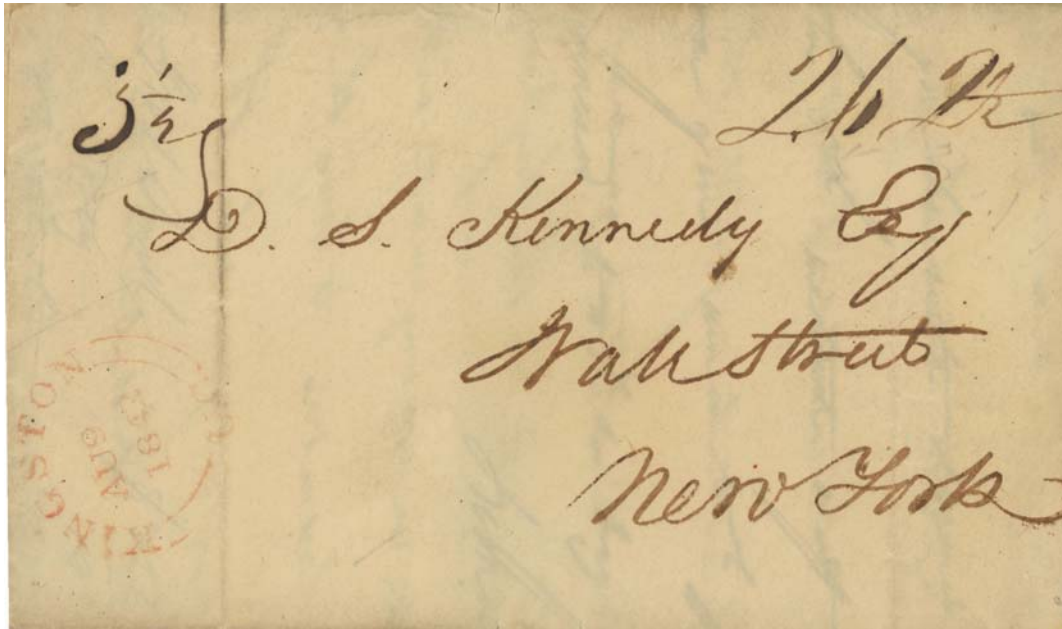 D. S. Kennedy Esq
Wall Street
New York
KINGSTON
AUG
1843